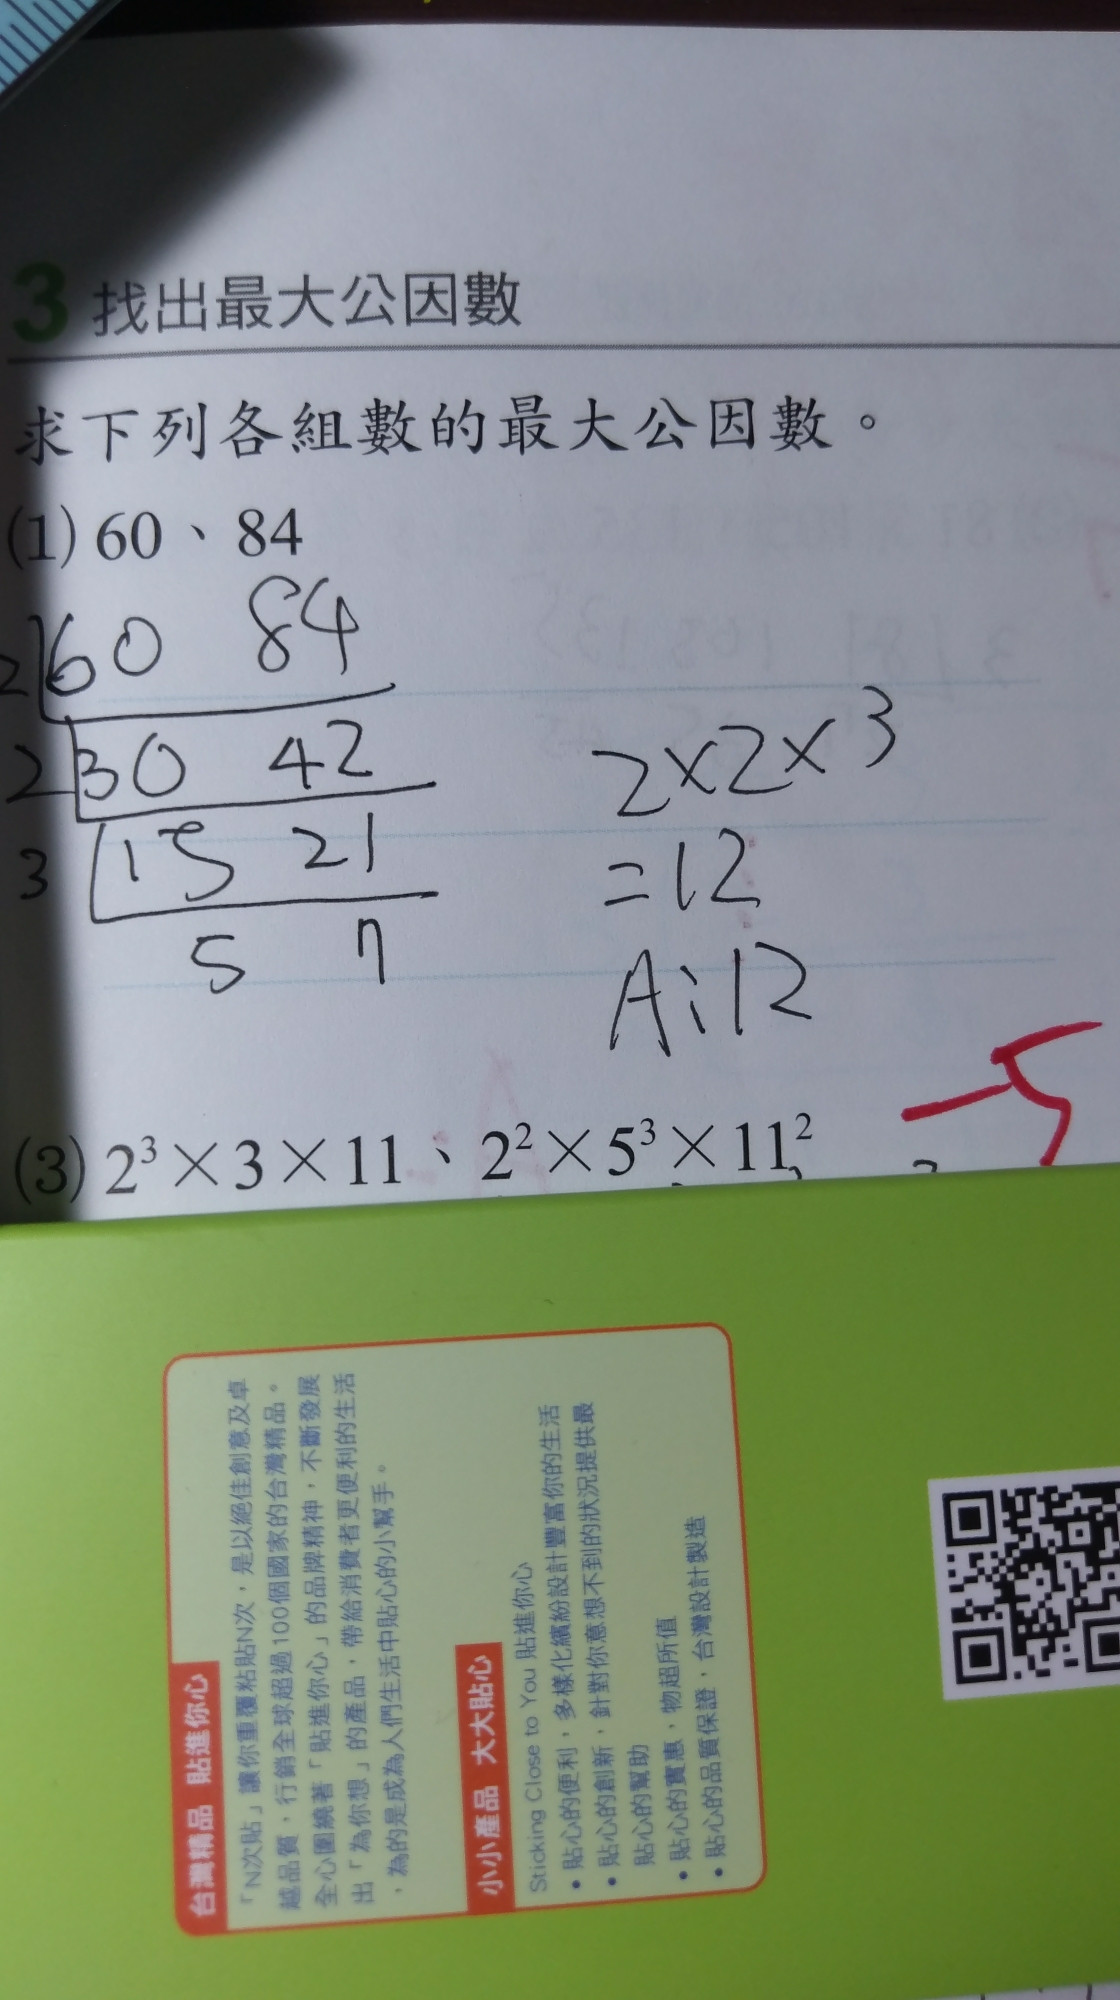 3 找出最大公因數
求下列各組數的最大公因數。
(1) 60、84
2 60 84
2 30 42
3 15 21
5 7
2×2×3
=12
A:12
-5
(3) 2³×3×11、2²×5³×11²
台灣精品 貼進你心
「N次貼」讓你重覆粘貼N次，是以絕佳創意及卓
越品質，行銷全球超過100個國家的台灣精品。
全心圍繞著「貼進你心」的品牌精神，不斷發展
出「為你想」的產品，帶給消費者更便利的生活
，為的是成為人們生活中貼心的小幫手。
小小產品 大大貼心
Sticking Close to You 貼進你心
• 貼心的便利，多樣化繽紛設計豐富你的生活
• 貼心的創新，針對你意想不到的狀況提供最
貼心的幫助
• 貼心的實惠，物超所值
• 貼心的品質保證，台灣設計製造